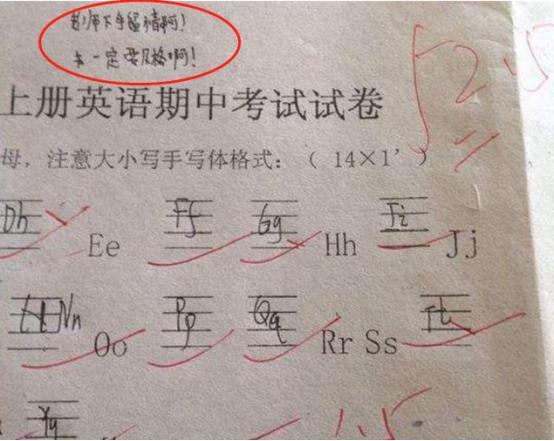 老师下手留情啊!
卡一定要及格啊!
上册英语期中考试试卷
52.5
母，注意大小写手写体格式：（ 14×1’ ）
Dh Ee Ff Gg Hh Ii Jj
Nn Oo Pp Qq Rr Ss Tt
Yy 1.5